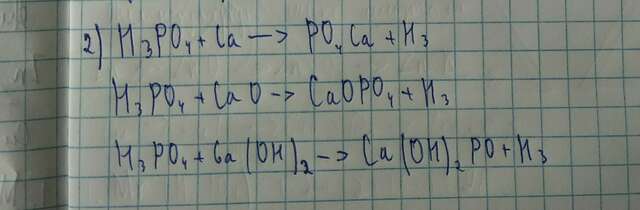 2) H₃PO₄ + Ca —> PO₄Ca + H₃
H₃PO₄ + CaO —> CaOPO₄ + H₃
H₃PO₄ + Ca(OH)₂ —> Ca(OH)₂PO + H₃